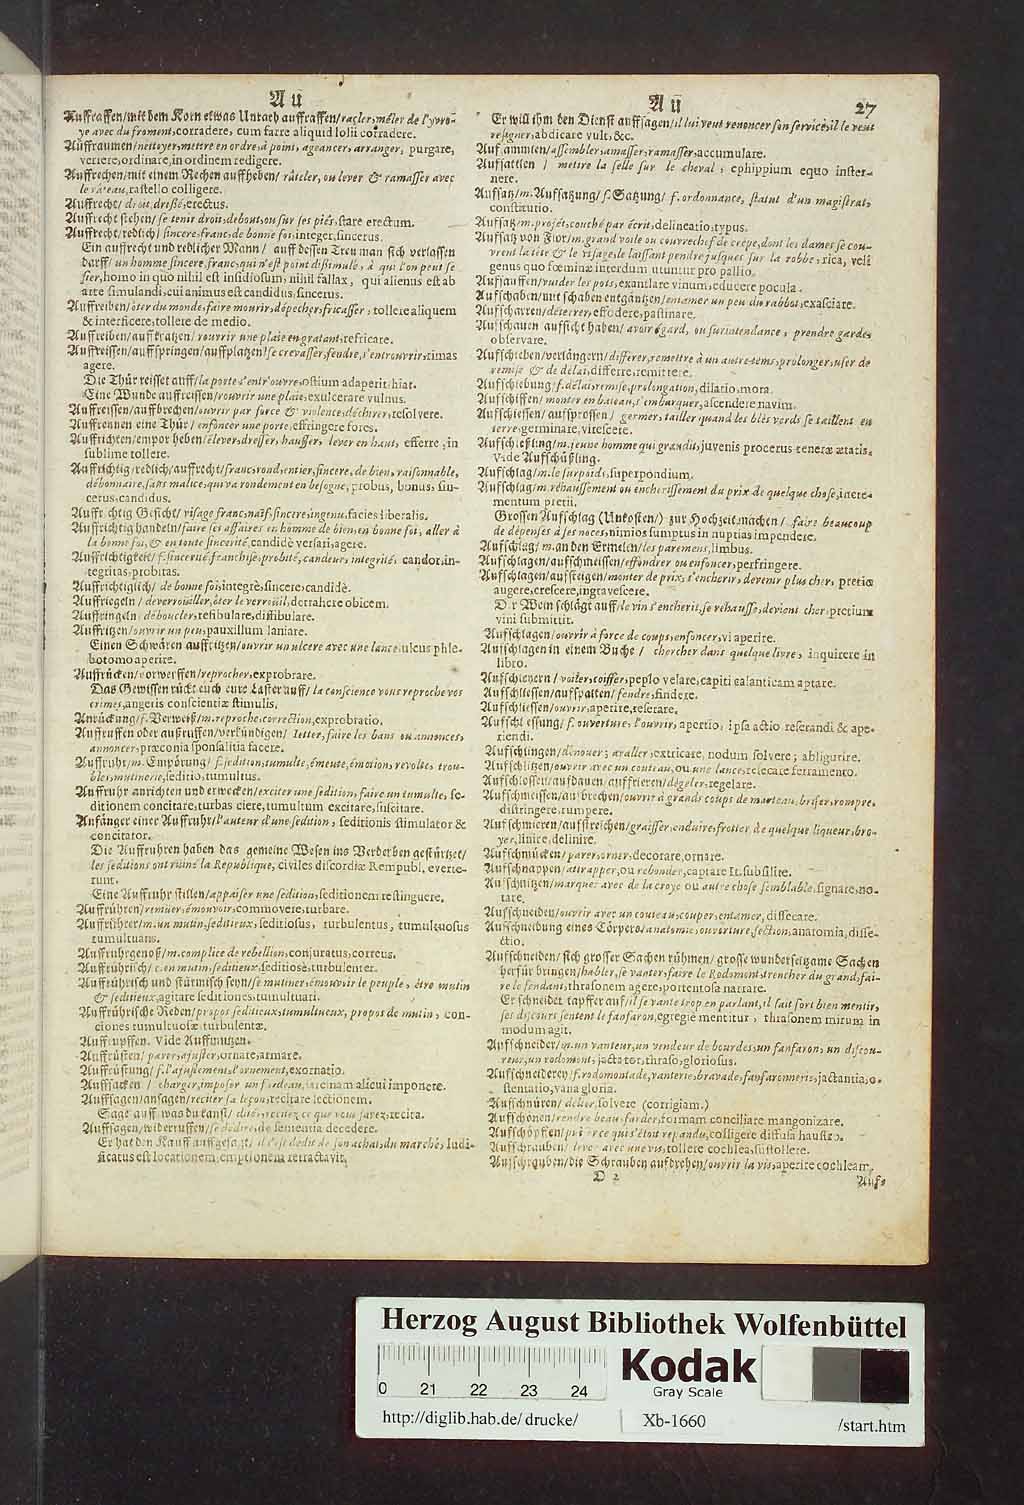 Au
Auffraffen/mit dem Korn etwas Unrath auffraffen/racler, mêler de l'yvro-
ye avec du froment, corradere, cum farre aliquid lolii corradere.
Auffraumen/nettoyer, mettre en ordre, à point, ageancer, arranger, purgare,
verrere, ordinare, in ordinem redigere.
Auffrechen/mit einem Rechen auffheben/râteler, ou lever & ramasser avec
le râteau, rastello colligere.
Auffrecht/droit, dressé, erectus.
Auffrecht stehen/se tenir droit, debout, ou sur ses piés, stare erectum.
Auffrecht/redlich/sincere, franc, de bonne foi, integer, sincerus.
Ein auffrecht und redlicher Mann/ auff dessen Treu man sich verlassen
darff/un homme sincere, franc, qui n'est point dissimulé, à qui l'on peut se
fier, homo in quo nihil est insidiosum, nihil fallax, qui alienus est ab
arte simulandi, cui animus est candidus, sincerus.
Auffreiben/ôter du monde, faire mourir, dépecher, fricasser, tollere aliquem
& interficere, tollere de medio.
Auffreiben/auffkratzen/rouvrir une plaie en gratant, refricare.
Auffreissen/auffspringen/auffplatzen/se crevasser, fendre, s'entrouvrir, rimas
agere.
Die Thür reisset auff/la porte s'entr'ouvre, ostium adaperit, hiat.
Eine Wunde auffreissen/rouvrir une plaie, exulcerare vulnus.
Auffreissen/auffbrechen/ouvrir par force & violence, déchirer, resolvere.
Auffrennen eine Thür/enfoncer une porte, effringere fores.
Auffrichten/empor heben/élever, dresser, hausser, lever en haut, efferre, in
sublime tollere.
Auffrichtig/redlich/auffrecht/franc, rond, entier, sincere, de bien, raisonnable,
débonnaire, sans malice, qui va rondement en besogne, probus, bonus, sin-
cerus, candidus.
Auffrichtig Gesicht/visage franc, naïf, sincere, ingenu, facies liberalis.
Auffrichtig handeln/faire ses affaires en homme de bien, en bonne foi, aller à
la bonne foi, & en toute sincerité, candidè versari, agere.
Auffrichtigkeit/f. sincerité, franchise, probité, candeur, integrité, candor, in-
tegritas, probitas.
Auffrichtiglich/ de bonne foi, integrè, sincere, candidè.
Auffriegeln/déverroüiller, ôter le verroüil, detrahere obicem.
Auffringeln/déboucler, refibulare, diffibulare.
Auffritzen/ouvrir un peu, pauxillum laniare.
Einen Schwären auffritzen/ouvrir un ulcere avec une lance, ulcus phle-
botomo aperire.
Auffrücken/vorwerffen/reprocher, exprobrare.
Das Gewissen rückt euch eure Laster auff/la conscience vous reproche vos
crimes, angeris conscientiæ stimulis.
Anrückung/f. Verweiß/m. reproche, correction, exprobratio.
Auffruffen oder außruffen/verkündigen/ Jetter, faire les bans ou annonces,
annoncer, præconia sponsalitia facere.
Auffruhr/m. Empörung/ f. sedition, tumulte, émeute, émotion, revolte, trou-
bles, mutinerie, seditio, tumultus.
Auffruhr anrichten und erwecken/exciter une sedition, faire un tumulte, se-
ditionem concitare, turbas ciere, tumultum excitare, suscitare.
Anfänger einer Auffruhr/l'auteur d'une sedition, seditionis stimulator &
concitator.
Die Auffruhren haben das gemeine Wesen ins Verderben gestürtzet/
les seditions ont ruiné la Republique, civiles discordiæ Rempubl. everte-
runt.
Eine Auffruhr stillen/appaiser une sedition, seditionem restinguere.
Auffrühren/remüer, émouvoir, commovere, turbare.
Auffrührer/m. un mutin, seditieux, seditiosus, turbulentus, tumultuosus
tumultuans.
Auffruhrgenoß/m. complice de rebellion, conjuratus, correus.
Auffrührisch/c. en mutin, seditieux, seditiosè, turbulenter.
Auffrührisch und stürmisch seyn/se mutiner, émouvoir le peuple, être mutin
& seditieux, agitare seditiones, tumultuari.
Auffrührische Reden/propos seditieux, tumultueux, propos de mutin, con-
ciones tumultuosæ turbulentæ.
Auffrupffen. Vide Auffmutzen.
Auffrüsten/ parer, ajuster, ornare, armare.
Auffrüstung/f. l'ajustement, l'ornement, exornatio.
Auffsacken / charger, imposer un fardeau, sarcinam alicui imponere.
Auffsagen/ansagen/reciter sa leçon, recitare lectionem.
Sage auff was du kanst/ dites, recitez ce que vous savez, recita.
Auffsagen/widerruffen/se dédire, de sententia decedere.
Er hat den Kauff auffgesagt/ il s'est dédit de son achat, du marché, ludi-
ficatus est locationem, emptionem retractavit.
Au
27
Er will ihm den Dienst auffsagen/il lui veut renoncer son service, il le veut
resigner, abdicare vult, &c.
Aufsammlen/assembler, amasser, ramasser, accumulare.
Aufsattlen / mettre la selle sur le cheval, ephippium equo inster-
nere.
Aufsatz/m. Aufsatzung/f. Satzung/ f. ordonnance, statut d'un magistrat,
constitutio.
Aufsatz/m. projét, couché par écrit, delineatio, typus.
Aufsatz von Flor/m. grand voile ou couvrechef de crêpe, dont les dames se cou-
vrent la tête & le visage, le laissant pendre jusques sur la robbe, rica, veli
genus quo fœminæ interdum utuntur pro pallio.
Aufsauffen/vuider les pots, exanilare vinum, educere pocula.
Aufschaben/mit schaben entgäntzen/entamer un peu du rabbot, exasciare.
Aufscharren/déterrer, effodere, pastinare.
Aufschauen aufsicht haben/avoir égard, ou surintendance, prendre garde,
observare.
Aufschieben/verlängern/differer, remettre à un autre tems, prolonger, user de
remise & de délai, differre, remittere.
Aufschiebung/f. délai, remise, prolongation, dilatio, mora.
Aufschiffen/ monter en bateau, s'embarquer, ascendere navim.
Aufschiessen/ aufsprossen/ germer, tailler quand les blés verds se taillent en
terre, germinare, virescere.
Aufschießling/m. jeune homme qui grandit, juvenis procerus teneræ ætatis.
Vide Aufschüßling.
Aufschlag/m. le surpoids, superpondium.
Aufschlag/m. réhaussement ou encherissement du prix de quelque chose, incre-
mentum pretii.
Grossen Aufschlag (Unkosten/) zur Hochzeit machen/ faire beaucoup
de dépenses à ses noces, nimios sumptus in nuptias impendere.
Aufschlag/ m. an den Ermeln/les paremens, limbus.
Aufschlagen/aufschmeissen/effondrer ou enfoncer, perfringere.
Aufschlagen/aufsteigen/monter de prix, s'encherir, devenir plus cher, pretio
augere, crescere, ingravescere.
Der Wein schlägt auff/le vin s'encherit, se réhausse, devient cher, pretium
vini submittit.
Aufschlagen/ouvrir à force de coups, enfoncer, vi aperire.
Aufschlagen in einem Buche / chercher dans quelque livre, inquirere in
libro.
Aufschleyern/ voiler, coiffer, peplo velare, capiti calanticam aptare.
Aufschliessen/aufspalten/ fendre, findere.
Aufschliessen/ouvrir, aperire, reserare.
Aufschliessung/ f. ouverture, l'ouvrir, apertio, ipsa actio reserandi & ape-
riendi.
Aufschlingen/dénouer; avaller, extricare, nodum solvere; abligurire.
Aufschlitzen/ouvrir avec un couteau, ou une lance, resecare ferramento.
Aufschlossen/aufdauen auffrieren/dégeler, regelare.
Aufschmeissen/aufbrechen/ouvrir à grands coups de marteau, briser, rompre,
distringere, rumpere.
Aufschmieren/aufstreichen/graisser, enduire, frotter de quelque liqueur, bro-
yer, linire, delinire.
Aufschmücken/ parer, orner, decorare, ornare.
Aufschnappen/attrapper, ou rebonder, captare It. subsilire.
Aufschnitzen/marquer avec de la croye ou autre chose semblable, signare, no-
tare.
Aufschneiden/ouvrir avec un couteau, couper, entamer, dissecare.
Aufschneidung eines Cörpers/anatomie, ouverture, section, anatomia, disse-
ctio.
Aufschneiden/sich grosser Sachen rühmen/ grosse wunderseltzame Sachen
herfür bringen/habler, se vanter, faire le Rodomont, trencher du grand, fai-
re le fendant, thrasonem agere, portentosa narrare.
Er schneidet tapffer auf/il se vante trop en parlant, il sait fort bien mentir,
ses discours sentent le fanfaron, egregiè mentitur, thrasonem mirum in
modum agit.
Aufschneider/m. un vanteur, un vendeur de bourdes, un fanfaron, un discou-
reur, un rodomont, jactator, thraso, gloriosus.
Aufschneiderey/f. rodomontade, vanterie, bravade, fanfaronnerie, jactantia, o-
stentatio, vana gloria.
Aufschnüren/ délier, solvere (corrigiam.)
Aufschönen/rendre beau, farder, formam conciliare mangonizare.
Aufschöpffen/puiser ce qui s'étoit repandu, colligere diffusa haustro.
Aufschrauben/ lever avec une vis, tollere cochlea, sustollere.
Aufschrauben/die Schrauben aufdrehen/ouvrir la vis, aperire cochleam.
D 2
Aufs
Herzog August Bibliothek Wolfenbüttel
0 21 22 23 24
Kodak
Gray Scale
http://diglib.hab.de/ drucke/
Xb-1660
/start.htm